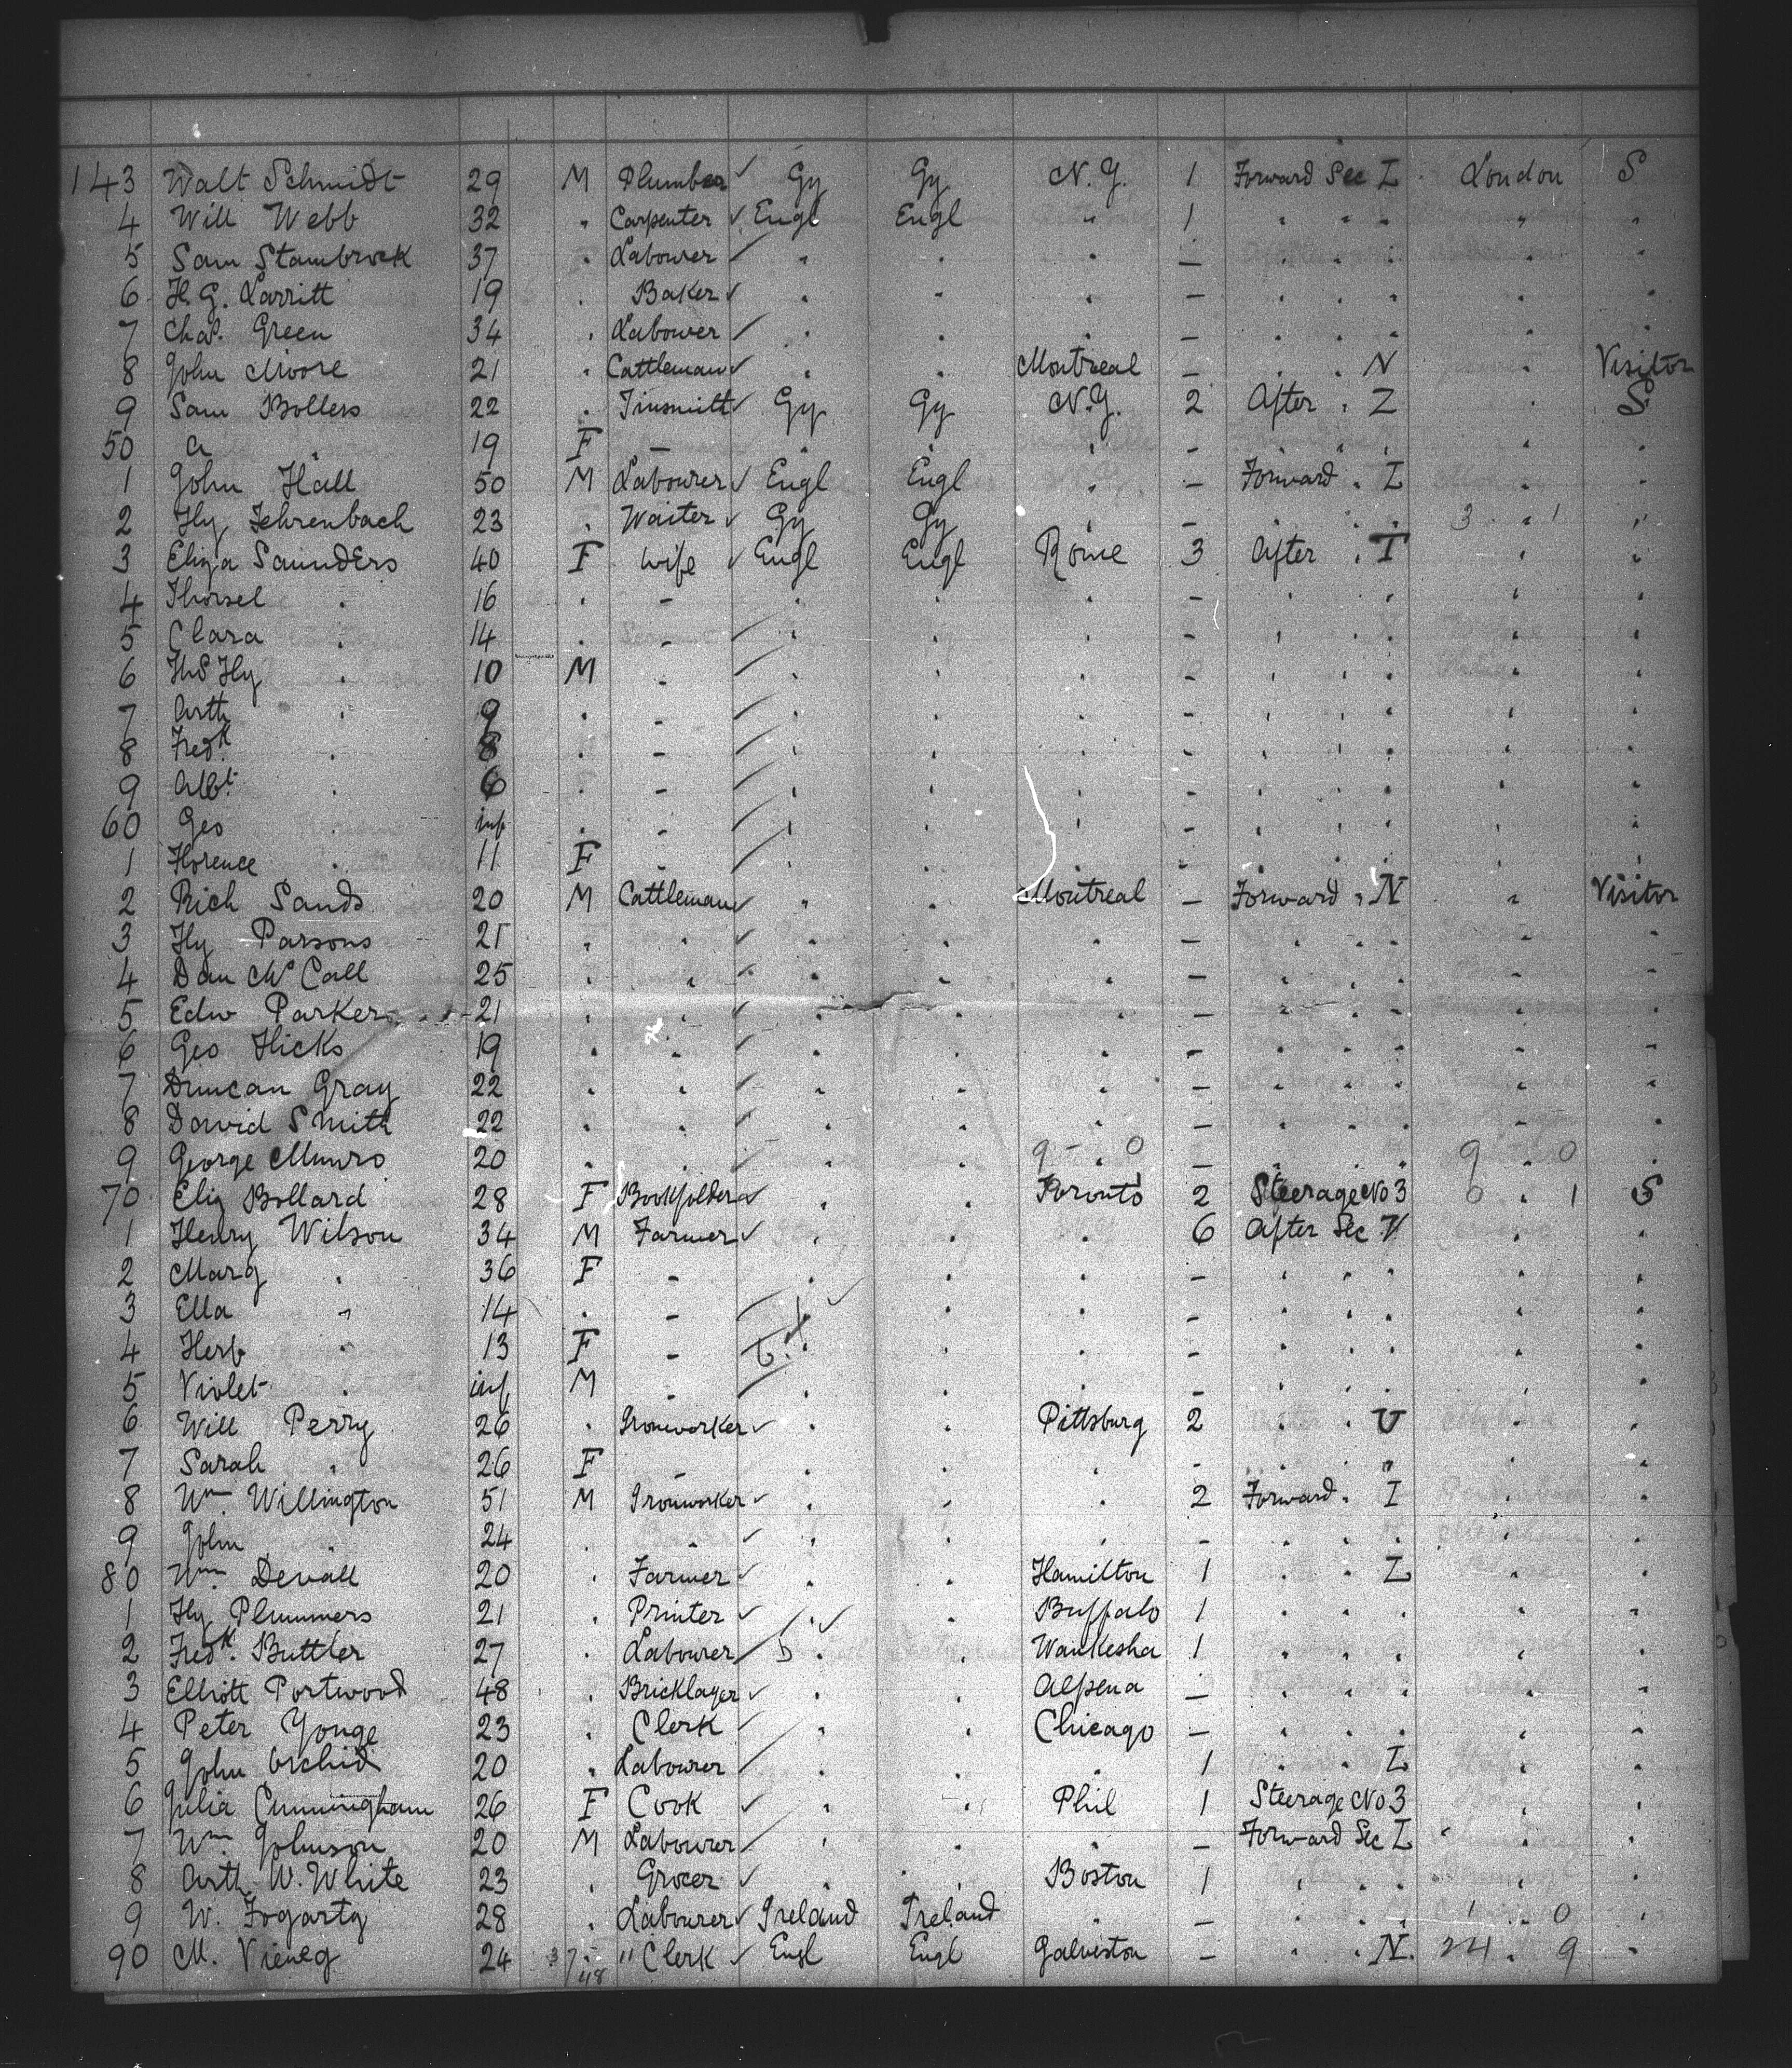 143 Walt Schmidt 29 M Plumber ✓ Gy Gy N.Y. 1 Forward Sec L London S
4 Will Webb 32 " Carpenter ✓ Engl Engl " 1 " " " " "
5 Sam Stambrook 37 " Labourer ✓ " " " — " " " " "
6 H.G. Larritt 19 " Baker ✓ " " " — " " " " "
7 Chas. Green 34 " Labourer ✓ " " " — " " " " "
8 John Moore 21 " Cattleman ✓ " " Montreal — " " N " Visitor
9 Sam Bollers 22 " Tinsmith ✓ Gy Gy N.Y. 2 After " Z " S
50 A " 19 F — " " " — " " " " "
1 John Hall 50 M Labourer ✓ Engl Engl " — Forward " L " "
2 Hy Fehrenbach 23 " Waiter ✓ Gy Gy " — " " " 3 " 1 "
3 Eliza Saunders 40 F Wife ✓ Engl Engl Rome 3 After " T " "
4 " 16 " — " " " — " " " " "
5 Clara " 14 " — ✓ " " " — " " " " "
6 Hy " 10 M — ✓ " " " — " " " " "
7 Arth " 9 " — ✓ " " " — " " " " "
8 Fredk " 8 " — ✓ " " " — " " " " "
9 Albt " 6 " — ✓ " " " — " " " " "
60 Geo " inf " — ✓ " " " — " " " " "
1 Florence " 11 F — ✓ " " " — " " " " "
2 Rich Sands 20 M Cattleman ✓ " " Montreal — Forward " N " Visitor
3 Hy Parsons 21 " " ✓ " " " — " " " " "
4 Dan McCall 25 " " ✓ " " " — " " " " "
5 Edw Parker 21 " " ✓ " " " — " " " " "
6 Geo Hicks 19 " " ✓ " " " — " " " " "
7 Duncan Gray 22 " " ✓ " " " — " " " " "
8 David Smith 22 " " ✓ " " " — " " " " "
9 George Munro 20 " " ✓ " " 9 - " 0 — " " " 9 " 0 "
70 Eliz Bollard 28 F Bookfolder ✓ " " Toronto 2 Steerage No 3 0 " 1 S
1 Henry Wilson 34 M Farmer ✓ " " " 6 After Sec V " "
2 Marg " 36 F — " " " — " " " " "
3 Ella " 14 " — ✓ " " " — " " " " "
4 Herb " 13 F — " " " — " " " " "
5 Violet " inf M — ✓ " " " — " " " " "
6 Will Perry 26 " Ironworker ✓ " " Pittsburg 2 " " U " "
7 Sarah " 26 F — " " " — " " " " "
8 Wm Willington 51 M Ironworker ✓ " " " 2 Forward " I " "
9 John " 24 " " ✓ " " " — " " " " "
80 Wm Devall 20 " Farmer ✓ " " Hamilton 1 " " L " "
1 Hy Plummers 21 " Printer ✓ " " Buffalo 1 " " " " "
2 Fredk. Buttler 27 " Labourer ✓ " " Waukesha 1 " " " " "
3 Elliott Portwood 48 " Bricklayer ✓ " " Alpena — " " " " "
4 Peter Yonge 23 " Clerk ✓ " " Chicago — " " " " "
5 John Orchid 20 " Labourer ✓ " " " 1 " " L " "
6 Julia Cunningham 26 F Cook ✓ " " Phil 1 Steerage No 3 " "
7 Wm Johnson 20 M Labourer ✓ " " " — Forward Sec L " "
8 Arth W. White 23 " Grocer ✓ " " Boston 1 " " " " "
9 W. Fogarty 28 " Labourer ✓ Ireland Ireland " — " " " 1 " 0 "
90 M. Vieweg 24 37/48 " Clerk ✓ Engl Engl Galveston — " " N. 24 " 9 "